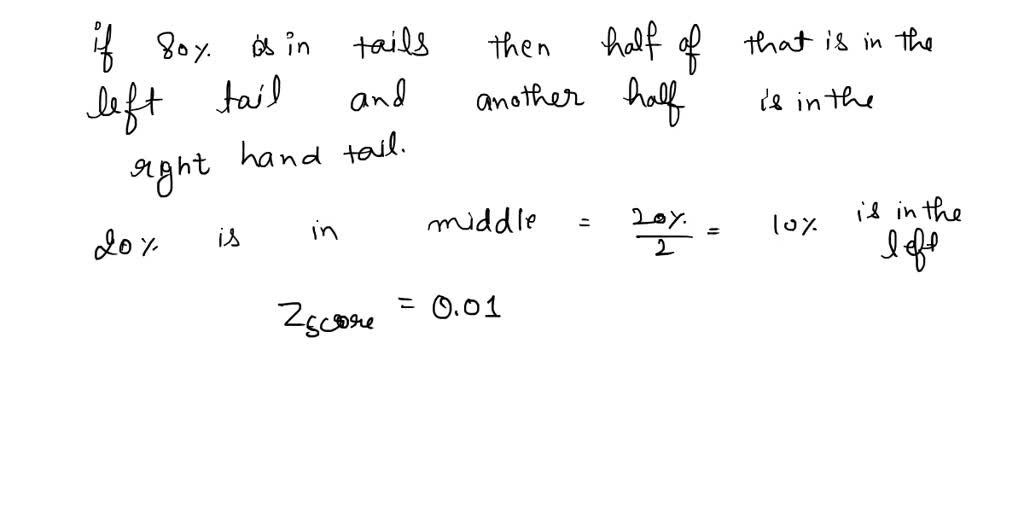 if 80% is in tails then half of that is in the
left tail and another half is in the
right hand tail.
20% is in middle = 20%/2 = 10% is in the left
Zscore = 0.01